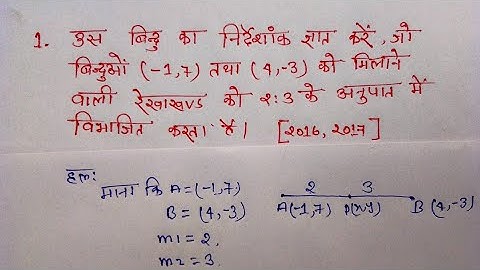 1. उस बिन्दु का निर्देशांक ज्ञात करें, जो
बिन्दुओं (-1,7) तथा (4,-3) को मिलाने
वाली रेखाखण्ड को 2:3 के अनुपात में
विभाजित करता है। [2016, 2017]
हल:
माना कि A=(-1,7)
B=(4,-3)
m1=2,
m2=3.
2 3
A(-1,7) P(x,y) B(4,-3)